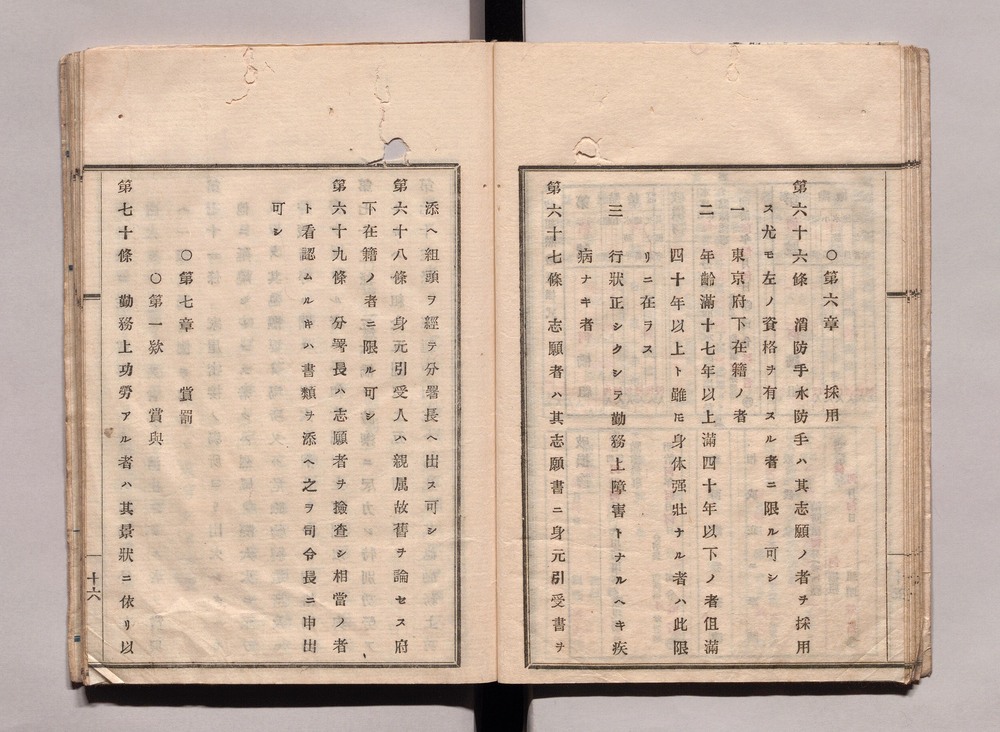 ○第六章 採用
第六十六條 消防手水防手ハ其志願ノ者ヲ採用
ス尤モ左ノ資格ヲ有スル者ニ限ル可シ
一 東京府下在籍ノ者
二 年齡滿十七年以上滿四十年以下ノ者但滿
四十年以上ト雖𪜈身体强壯ナル者ハ此限
リニ在ラス
三 行狀正シクシテ勤務上障害トナルヘキ疾
病ナキ者
第六十七條 志願者ハ其志願書ニ身元引受書ヲ
添ヘ組頭ヲ經テ分署長ヘ出ス可シ
第六十八條 身元引受人ハ親属故舊ヲ論セス府
下在籍ノ者ニ限ル可シ
第六十九條 分署長ハ志願者ヲ撿查シ相當ノ者
ト看認ムルキハ書類ヲ添ヘ之ヲ司令長ニ申出
可シ
○第七章 賞罰
○第一欵 賞與
第七十條 勤務上功勞アル者ハ其景狀ニ依リ以
十六